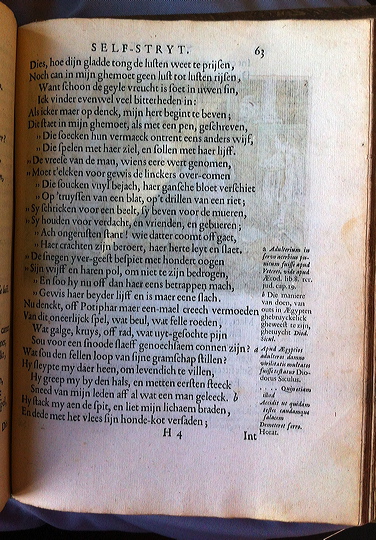 SELF-STRYT. 63
Dies, hoe dijn gladde tong de lusten weet te prijsen,
Noch can in mijn ghemoet geen lust tot lusten rijsen,
Want schoon de geyle vreucht is soet in uwen sin,
Ick vinder evenwel veel bitterheden in:
Als icker maer op denck, mijn hert begint te beven;
Dit staet in mijn ghemoet, als met een pen, geschreven,
" Die soecken hun vermaeck ontrent eens anders wijf,
" Die spelen met haer ziel, en sollen met haer lijff.
" De vreese van de man, wiens eere wert genomen,
" Moet t'elcken voor gewis de linckers over-comen
" Die soucken vuyl bejach, haer gansche bloet verschiet
" Op 't ruyssen van een blat, op 't drillen van een riet;
" Sy schticken voor een beelt, sy beven voor de mueren,
" Sy houden voor verdacht, en vrienden, en gebueren;
" Ach ongerusten stant! wie datter coomt off gaet,
" Haer crachten zijn beroert, haer herte leyt en slaet.
" De snegen yver-geest bespiet met hondert oogen
" Sijn wijff en haren pol, om niet te zijn bedrogen,
" En soo hy nu off dan haer eens betrappen mach,
" Gewis haer beyder lijff en is maer eene slach.
Nu denckt, off Potiphar maer een-mael creech vermoeden
Van dit oneerlick spel, wat beul, wat felle roeden,
Wat galge, kruys, off rad, wat uyt-gesochte pijn
Sou voor een snoode slaeff genoechsaem connen zijn? a
Wat sou den fellen loop van sijne gramschap stillen?
Hy sleypte my daer heen, om levendich te villen,
Hy greep my by den hals, en metten eersten steeck
Sneed van mijn leden aff al wat een man geleeck. b
Hy stack my aen de spit, en liet mijn lichaem braden,
En dede met het vlees sijn honde-kot versaden;
H 4 Int
a Adulterium in
servo acerbius pu-
nitum fuisse apud
Veteres, vide apud
Æcod. lib. 8. rer.
jud. cap. 19.
b Die maniere
van doen, van
outs in Ægypten
ghebruyckelick
gheweest te zijn,
ghetuycht Diod.
Sicul.
Apud Ægyptios
adulteros damno
virilitatis multatos
fuisse testatur Dio-
dorus Siculus.
.... Quinetiam
illud
Accidit ut quidam
testes caudamque
salacem
Demeteret ferro.
Horat.